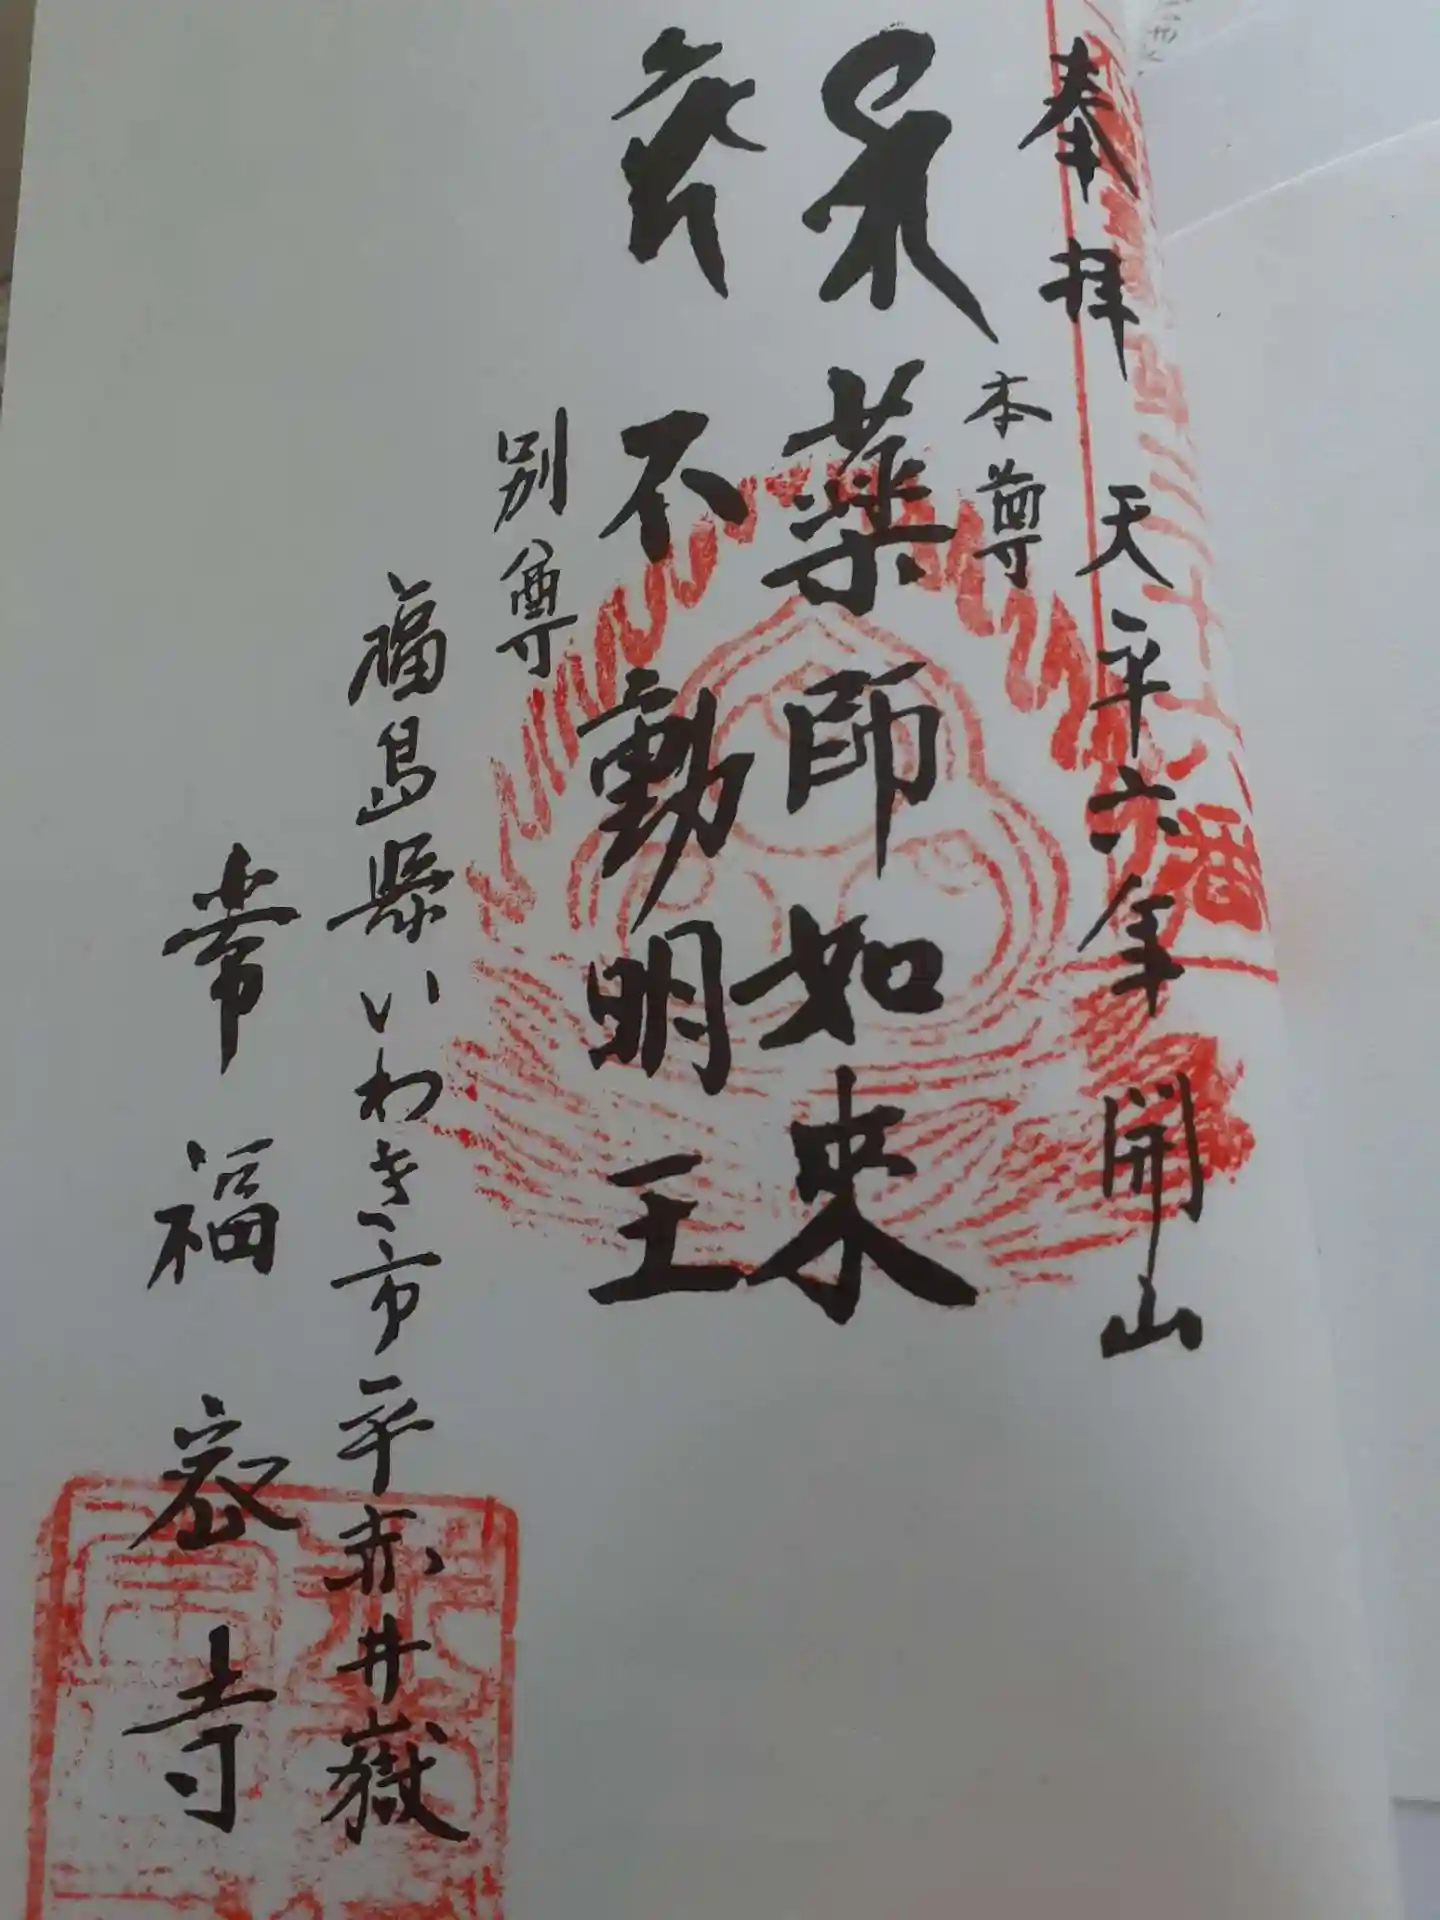 奉拝 天平六年 開山
本尊
薬師如来
不動明王
別尊
福島縣いわき市平赤井嶽
常福寺